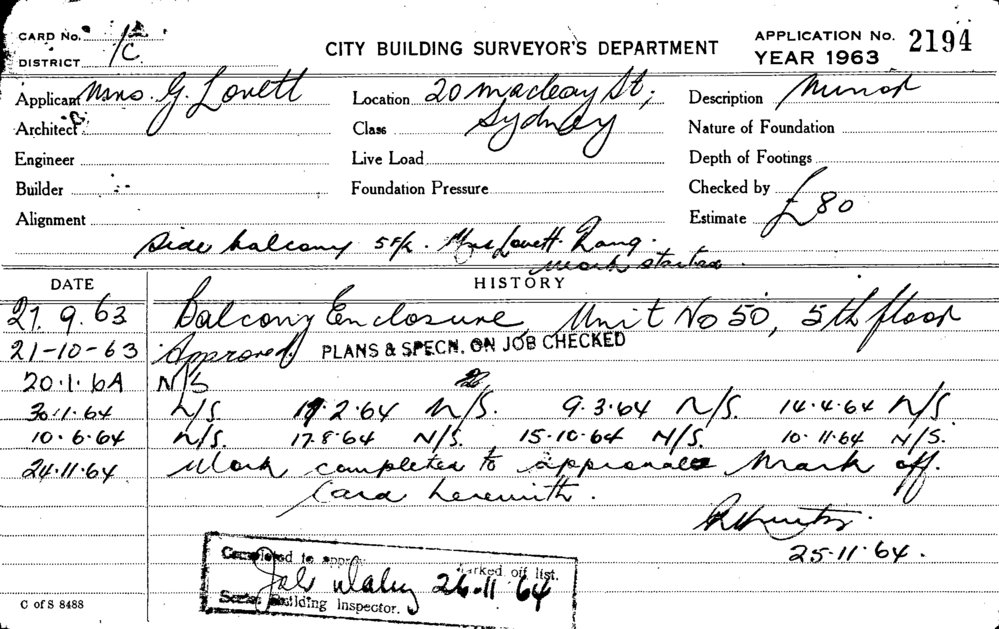 CARD No. 1C
DISTRICT
CITY BUILDING SURVEYOR'S DEPARTMENT
APPLICATION No. 2194
YEAR 1963
Applicant Mrs. G. Lovett
Location 20 Macleay St,
Sydney
Description Minor
Architect
Class
Nature of Foundation
Engineer
Live Load
Depth of Footings
Builder
Foundation Pressure
Checked by
Alignment
Estimate £80
Side balcony 5 F/R. Mrs Lovett Rang.
work started.
DATE HISTORY
27. 9. 63 Balcony Enclosure, Unit No 50, 5th floor
21-10-63 Approved PLANS & SPECN. ON JOB CHECKED
20.1.64 N/S
30.1.64 N/S 19.2.64 N/S. 9.3.64 N/S. 14.4.64 N/S
10.6.64 N/S. 17.8.64 N/S. 15.10.64 N/S. 10.11.64 N/S.
24.11.64 Work completed to approval Mark off.
Card herewith.
25.11.64.
Completed to
marked off list.
26.11 64
Building Inspector.
C of S 8488